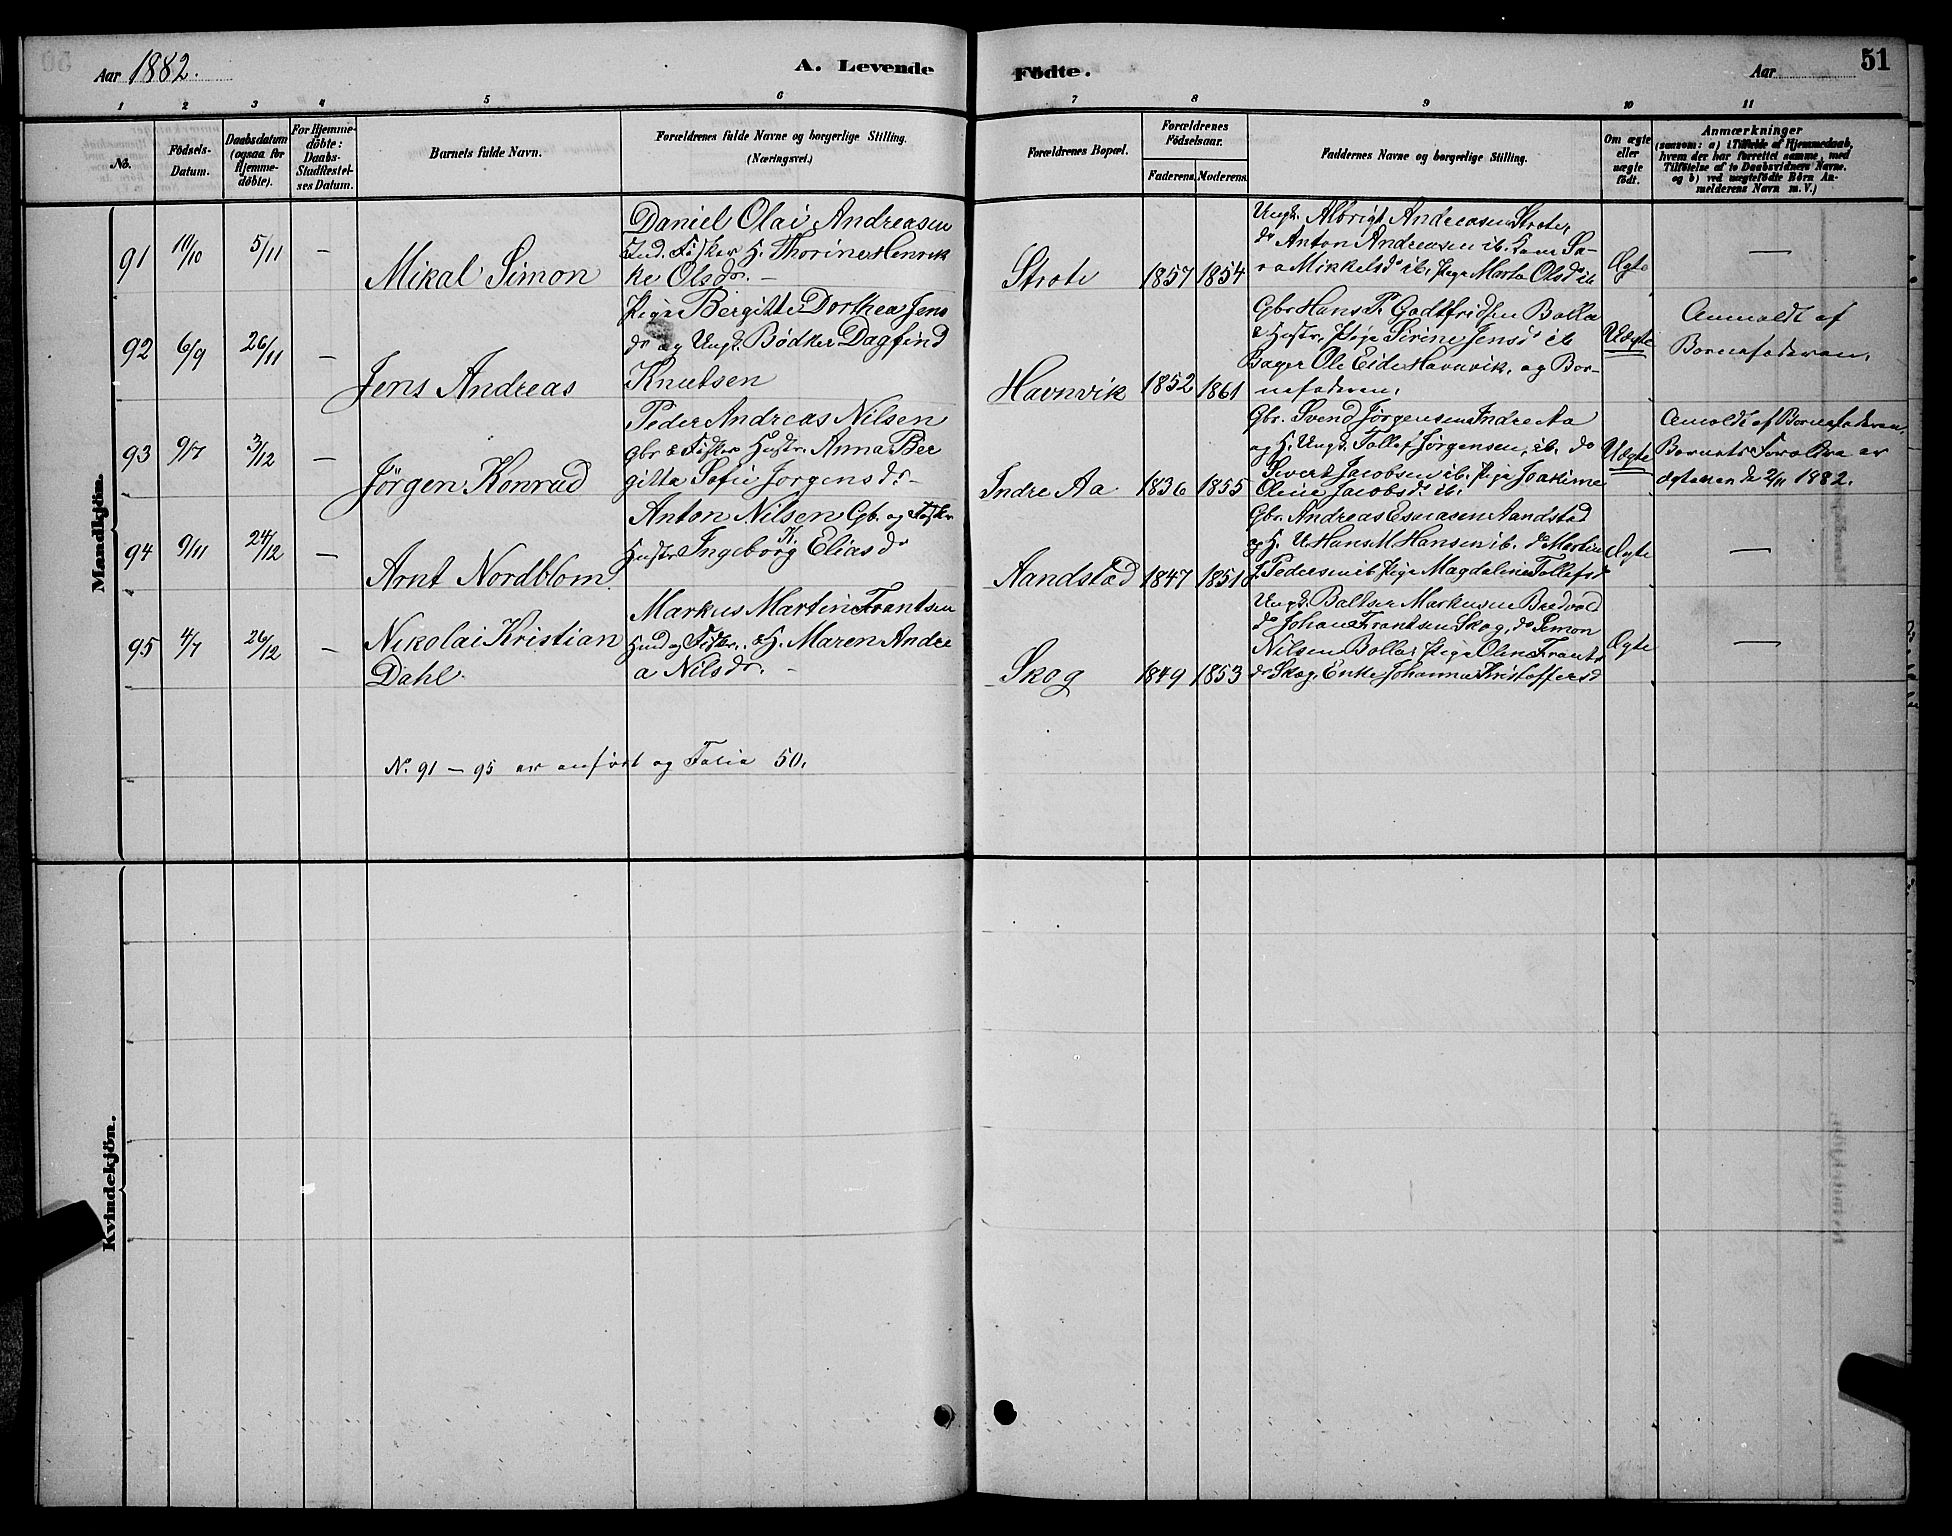 Aar 1882.
A. Levende
Fødte.
Aar
51
1 2 3 4 5 6 7 8 9 10 11
No.
Födsels-
Datum.
Daabsdatum
(ogsaa for
Hjemme-
döbte).
For Hjemme-
döbte:
Daabs-
Stadfæstel-
ses Datum.
Barnets fulde Navn.
Forældrenes fulde Navne og borgerlige Stilling.
(Næringsvei.)
Forældrenes Bopæl.
Forældrenes
Födselsaar.
Faderens.
Moderens.
Faddernes Navne og borgerlige Stilling.
Om ægte
eller
uægte
födt.
Anmærkninger
(saasom: a) i Tilfælde af Hjemmedaab,
hvem der har forrettet samme, med
Tilföielse af to Daabsvidners Navne.
og b) ved uægtefödte Börn An-
melderens Navn m. V.)
Mandkjön.
91 10/10 5/11 —
Mikal Simon
Daniel Olai Andreasen
Ind. Fisker H. Thorine Henrik
ke Olsdr. —
Strote 1857 1854
Ungk. Albrigt Andreasen Strote,
do Anton Andreasen ib. Kone Sa-
ra Mikkelsd ib. Pige Marta Olsd ib
Ægte —
92 6/9 26/11 —
Jens Andreas
Pige Bergitte Dorthea Jens
dr og Ungk. Bødker Dagfind
Knutsen
Havnvik 1852 1861
Gbr Hans P. Godtfridsen Bolla
& Hustr, Pige Sirine Jensd ib
Bager Ole Eide Havnvik, og Bar-
nefaderen.
Uægte
Anmeldt af
Barnefaderen.
93 9/7 3/12 —
Jörgen Konrad
Peder Andreas Nilsen
gbr & Fisker Hustr. Anna Ber
gitta Sofie Jorgensdr. —
Indre Aa 1836 1855
Gbr. Svend Jørgensen Indre Aa
og H. Ungk. Tollef Jørgensen, ib. do
Sivert Jacobsen ib. Pige Joakime
Oline Jacobsd. ib.
Uægte
Anmeldt af Barnefaderen,
Barnets Forældre er
ægteviet d 2/11 1882.
94 9/11 24/12 —
Arnt Nordblom
Anton Nilsen Gb. og Fisker
Hustr Ingeborg K. Eliasdr
Aandstad 1847 1851
Gbr. Andreas Esaiasen Aandstad
og H. U. Hans M Hansen ib. do Martin
J. Pedersen ib Pige Magdaline Tollefsd
Ægte —
95 4/7 26/12 —
Nikolai Kristian
Dahl.
Markus Martin Frantsen
Hmd og Fisker, & H. Maren Andre
a Nilsdr. —
Skog 1849 1853
Ungk. Baltser Markusen Bredvold
do Johan Frantsen Skog, do Simon
Nilsen Bolla, Pige Oline Frants
dr Skog, Enke Johanna Kristoffersd
Ægte —
No. 91 — 95 er anført og Folio 50.
Kvindekjön.